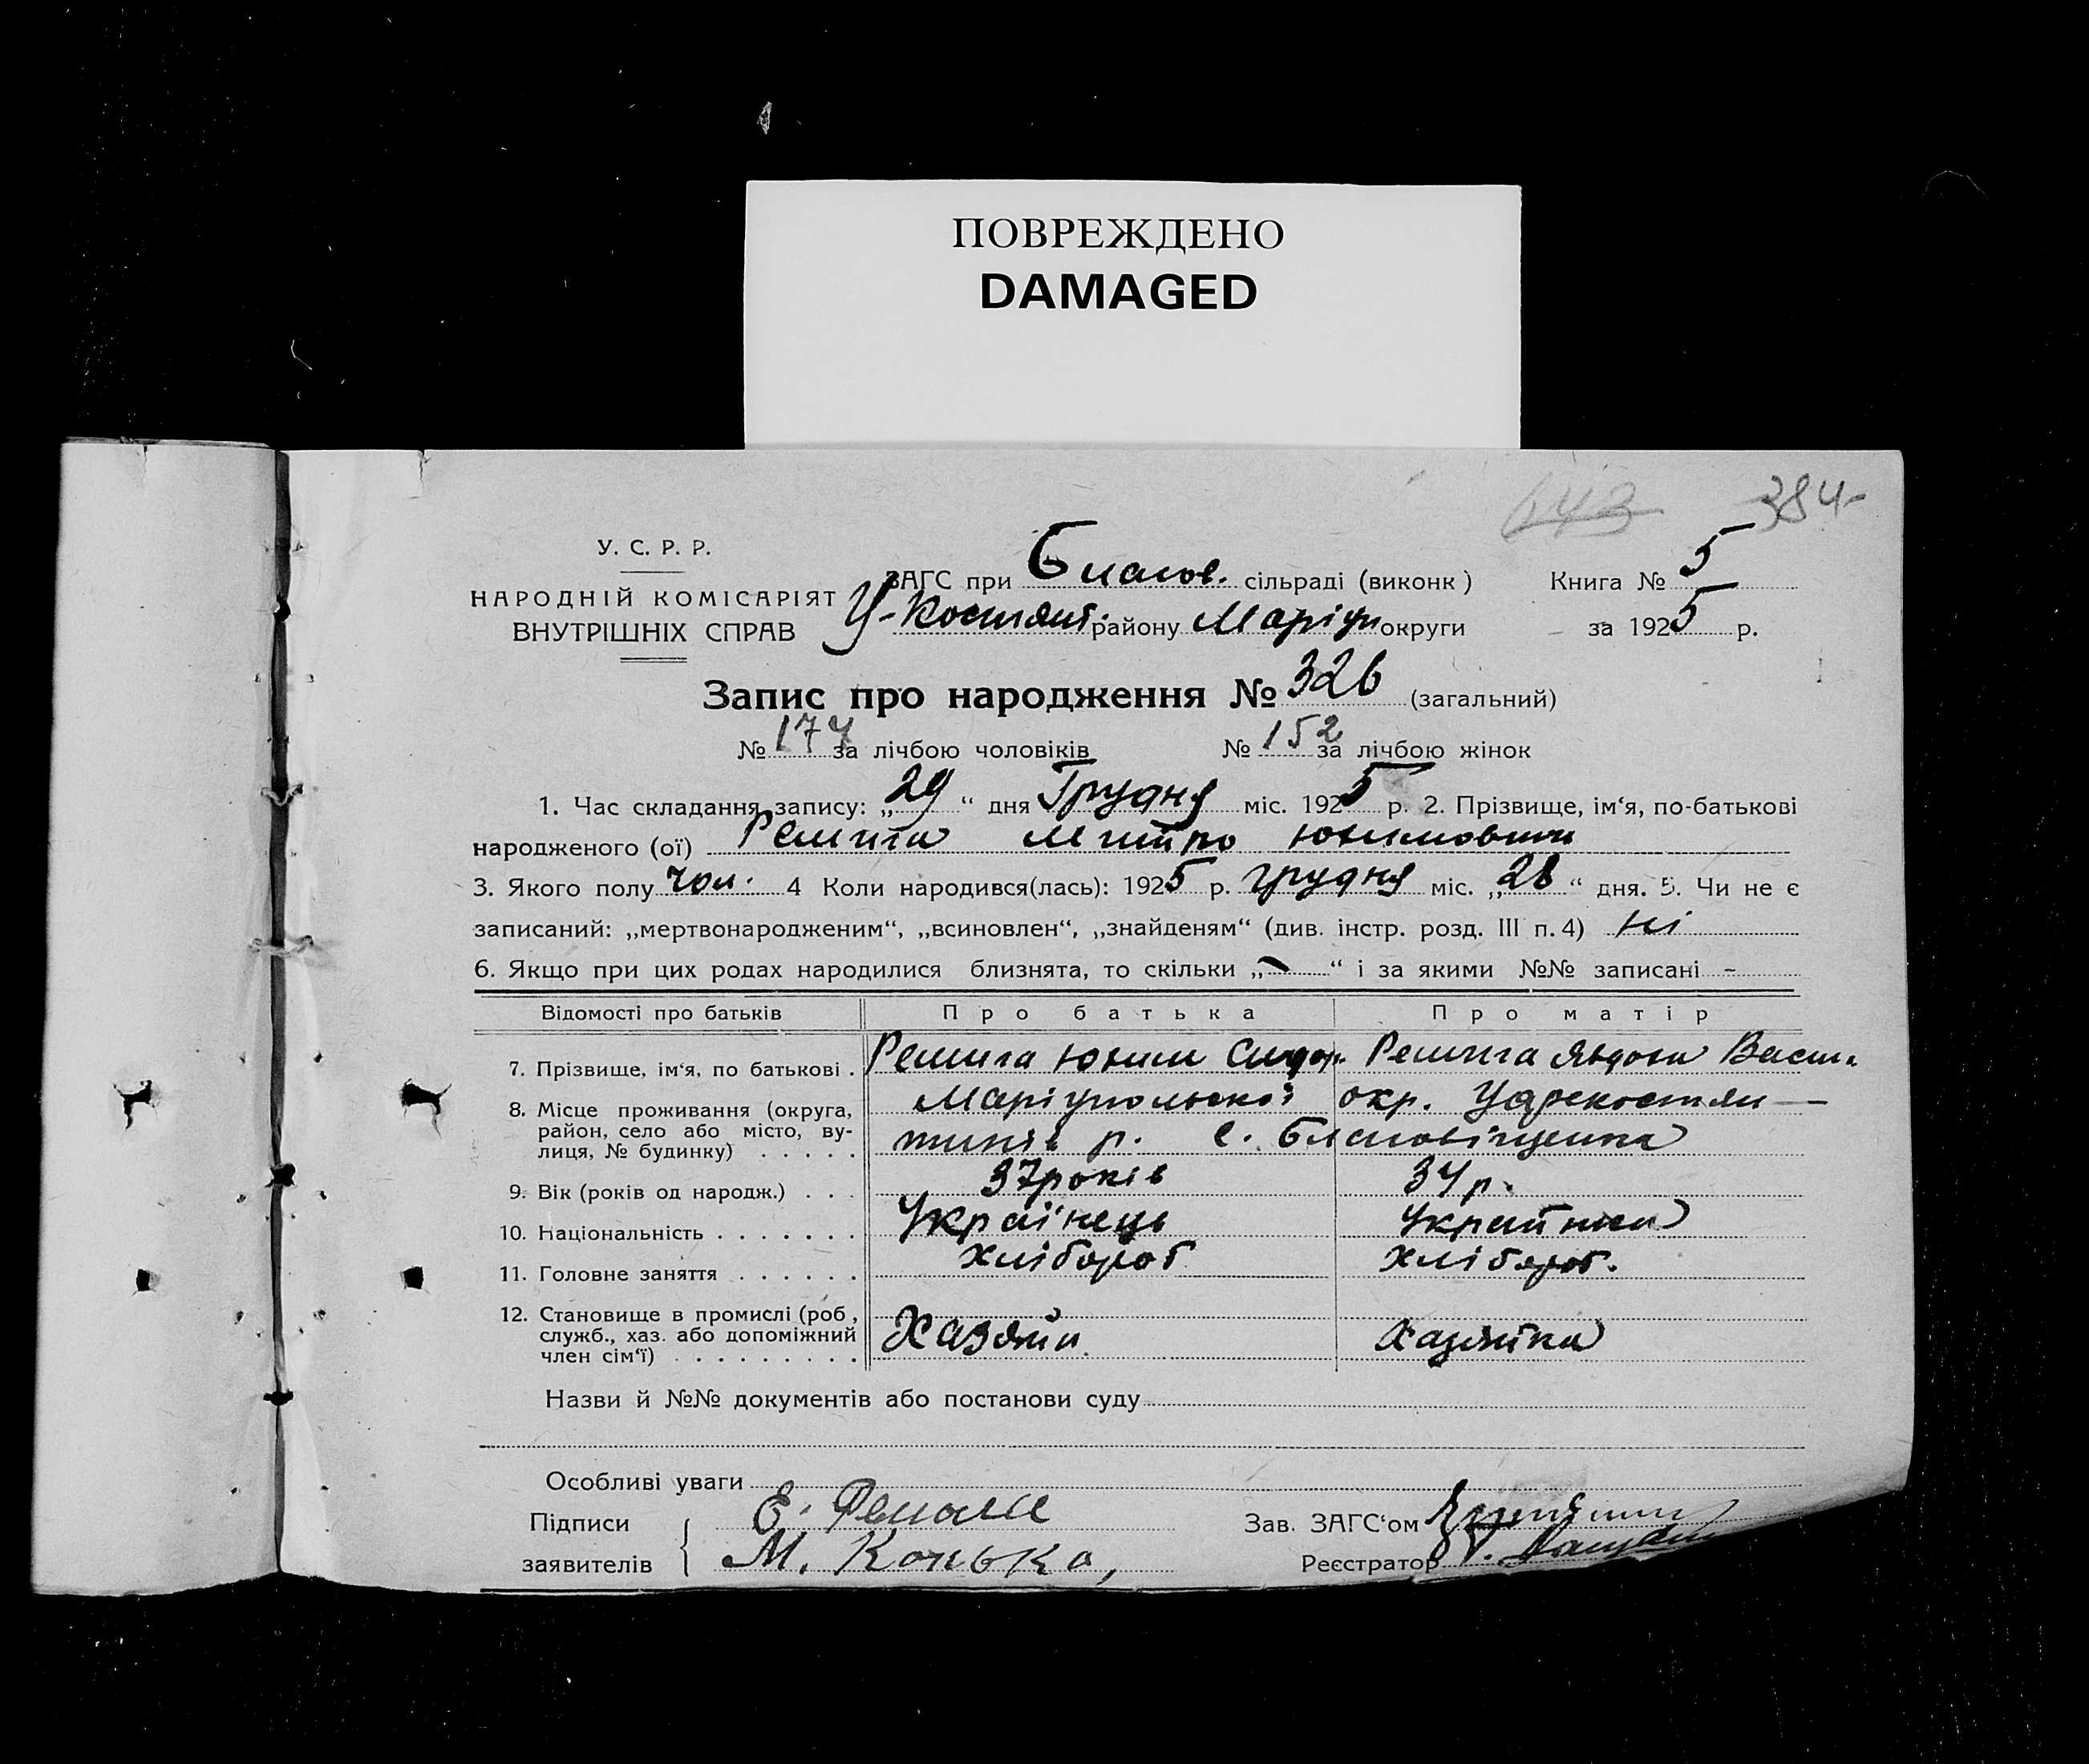 ПОВРЕЖДЕНО
DAMAGED
643 384
У. С. Р. Р.
НАРОДНІЙ КОМІСАРІЯТ
ВНУТРІШНІХ СПРАВ
ЗАГС при Благов. сільраді (виконк) Книга № 5
У-Костянт. району Маріуп округи за 1925 р.
Запис про народження № 326 (загальний)
№ 174 за лічбою чоловіків № 152 за лічбою жінок
1. Час складання запису: „29“ дня Грудня міс. 1925 р. 2. Прізвище, ім‘я, по-батькові
народженого (ої) Юхимович
3. Якого полу чол. 4 Коли народився(лась): 1925 р. грудня міс. „28“ дня. 5. Чи не є
записаний: „мертвонародженим“, „всиновлен“, „знайденям“ (див. інстр. розд. III п. 4) ні
6. Якщо при цих родах народилися близнята, то скільки „-“ і за якими №№ записані -
Відомості про батьків Про батька Про матір
7. Прізвище, ім‘я, по батькові . Юхим Сидор. Явдоха Васил.
8. Місце проживання (округа, район, село або місто, вулиця, № будинку) . . . . . Маріупольської окр. р. с.
9. Вік (років од народж.) . . . 37 років 34 р.
10. Національність . . . . . . . Українець Українка
11. Головне заняття . . . . . . хлібороб хлібороб.
12. Становище в промислі (роб, служб., хаз. або допоміжний член сім‘ї) . . . . . . . . . Хазяїн Хазяйка
Назви й №№ документів або постанови суду
Особливі уваги
Підписи
заявителів
М. Конько,
Зав. ЗАГС‘ом
Реєстратор